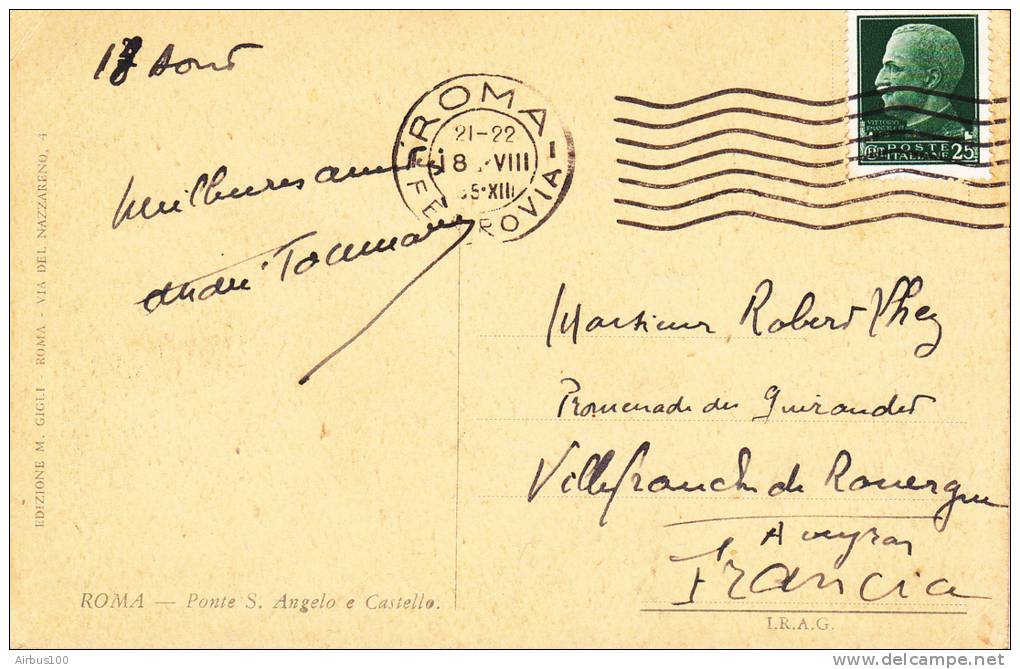 18 Aout
ROMA
FERROVIA
21-22
18 · VIII
35·XIII
VITTORIO
POSTE
ITALIANE
25
André
Monsieur Robert
Promenade du Guiraudet
Villefranche de Rouergue
Aveyron
Francia
I.R.A.G.
ROMA — Ponte S. Angelo e Castello.
EDIZIONE M. GIGLI - ROMA - VIA DEL NAZZARENO, 4
Airbus100
www.delcampe.net